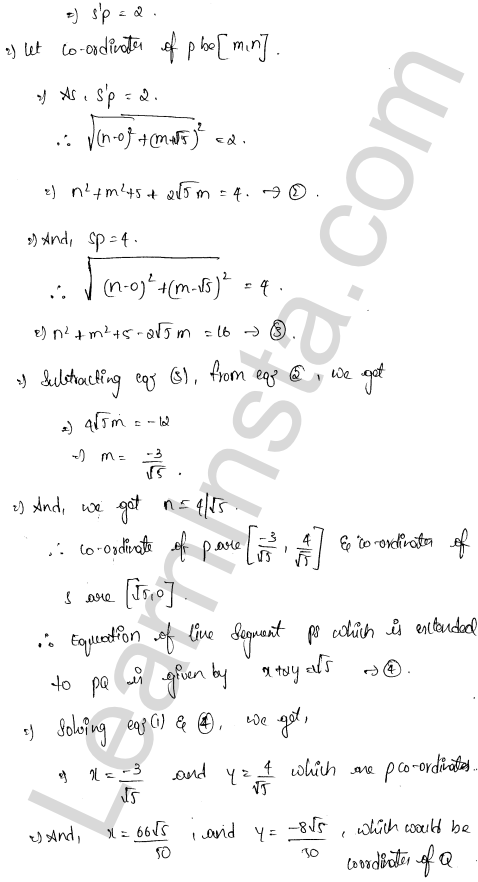 ⇒ s'p = 2.
⇒ Let co-ordinates of p be [m,n].
⇒ As, s'p = 2.
∴ √(n-0)²+(m+√5)² = 2.
⇒ n²+m²+5+2√5m = 4. → ②.
⇒ And, sp = 4.
∴ √(n-0)²+(m-√5)² = 4.
⇒ n²+m²+5-2√5m = 16 → ③.
⇒ Subtracting eqⁿ (3), from eqⁿ ②, we get
⇒ 4√5m = -12
⇒ m = -3/√5.
⇒ And, we get n = 4/√5.
∴ co-ordinate of p are [-3/√5, 4/√5] & co-ordinates of
s are [√5,0].
∴ Equation of line segment ps which is extended
to PQ is given by x+2y=√5 → ④.
⇒ Solving eqⁿ(1) & ④, we get,
⇒ x = -3/√5 and y = 4/√5 which are p co-ordinates.
⇒ And, x = 66√5/50, and y = -8√5/30, which would be
coordinates of Q
LearnInsta.com